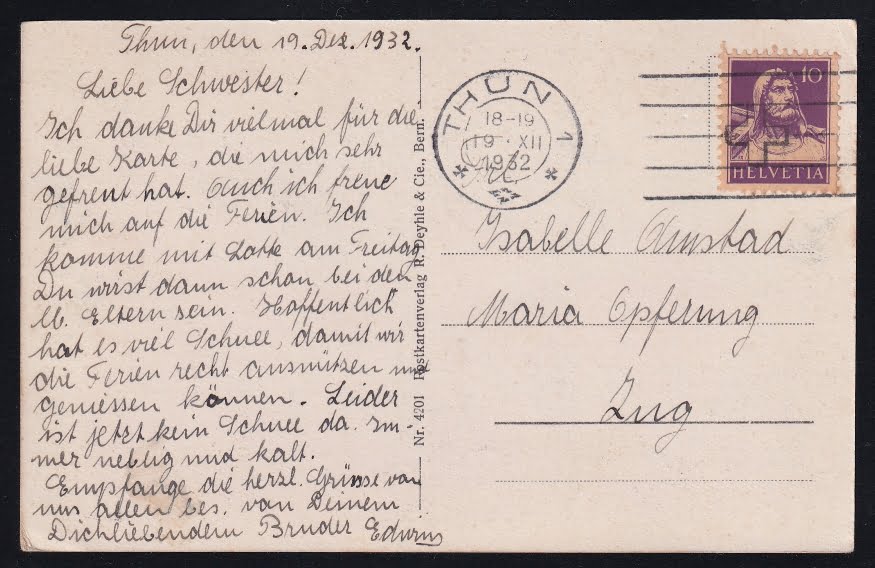 Thun, den 19. Dez. 1932.
Liebe Schwester!
Ich danke Dir vielmal für die
liebe Karte, die mich sehr
gefreut hat. Auch ich freue
mich auf die Ferien. Ich
komme mit Lotte am Freitag
Du wirst dann schon bei den
lb. Eltern sein. Hoffentlich
hat es viel Schnee, damit wir
die Ferien recht ausnützen und
geniessen können. Leider
ist jetzt kein Schnee da. Im-
mer neblig und kalt.
Empfange die herzl. Grüsse von
uns allen bes. von Deinem
Dichliebendem Bruder Edwin
Nr. 4201 Postkartenverlag R. Deyhle & Cie., Bern.
THUN 1
18-19
19 · XII
1932
10
HELVETIA
Isabelle Amstad
Maria Opferung
Zug